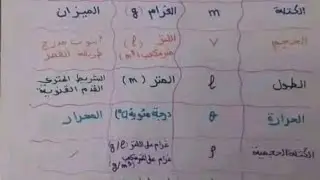 الكتلة m الغرام (g) الميزان
الحجم V اللتر (l) أنبوب مدرج
متر مكعب (m³) طريقة الغمر
الطول l المتر (m) الشريط المتري
القدم القنوية
الحرارة θ درجة مئوية (°C) المحرار
الكتلة الحجمية ρ غرام على اللتر (g/l)
غرام على المتر مكعب (g/m³) /